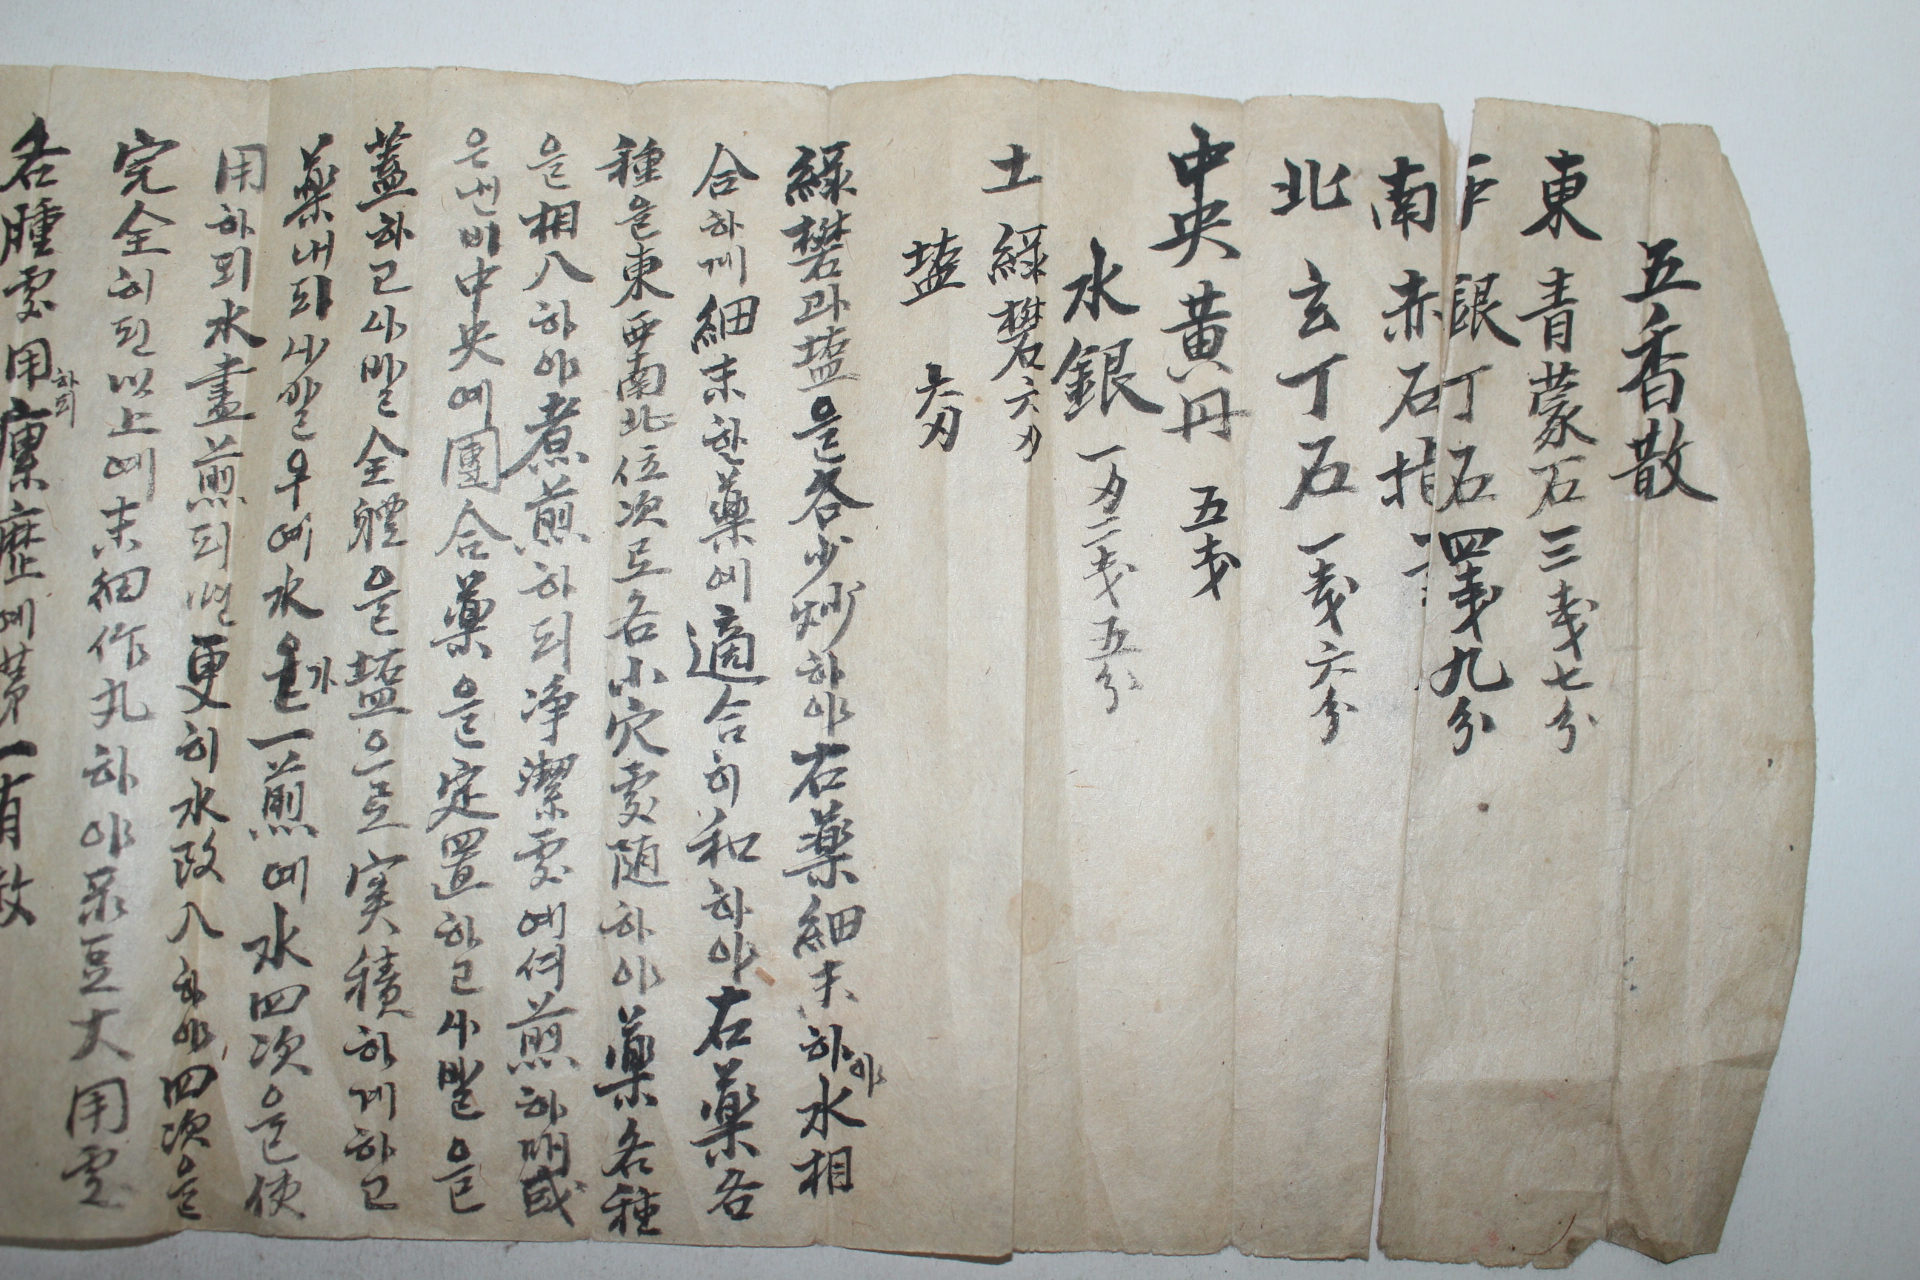 五香散
東 青蒙石 三戔七分
戶 銀丁石 四戔九分
南 赤石指 二
北 玄丁石 一戔六分
中央 黃丹 五戔
水銀 一刃二戔五分
土 綠礬 六刃
塩 六刃
綠礬과塩을各少炒하야右藥細末하야水相
合하게細末한藥에適合히和하야右藥各
種을東西南北位次로各小穴處随하야藥各種
을相入하야煮煎하되净潔處에서煎하때或
은낸비中央에團合藥을定置하고사발을
蓋하고사발全體을塩으로実積하게하고
藥내되사발우에水을가一煎에水四次을使
用하되水盡煎되면更히水改入하야四次을
完全히된以上에末細作丸하야菉豆大用處
各腫處用하되瘰歷에第一有效